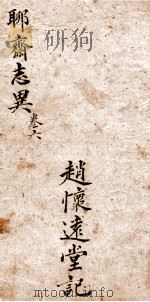 聊齋志異 卷六
趙懷遠堂記